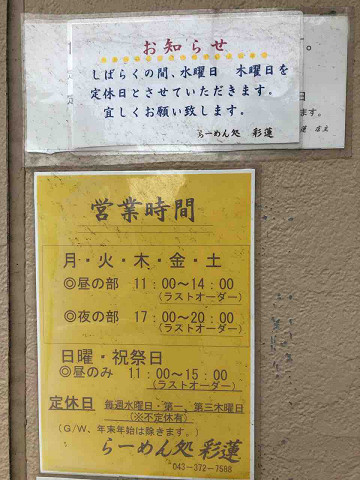 お知らせ
しばらくの間、水曜日 木曜日を
定休日とさせていただきます。
宜しくお願い致します。
らーめん処 彩蓮
営業時間
月・火・木・金・土
◎昼の部 11:00～14:00
(ラストオーダー)
◎夜の部 17:00～20:00
(ラストオーダー)
日曜・祝祭日
◎昼のみ 11:00～15:00
(ラストオーダー)
定休日 毎週水曜日・第一、第三木曜日
(※不定休有)
(G/W、年末年始は除きます。)
らーめん処 彩蓮
043-372-7588